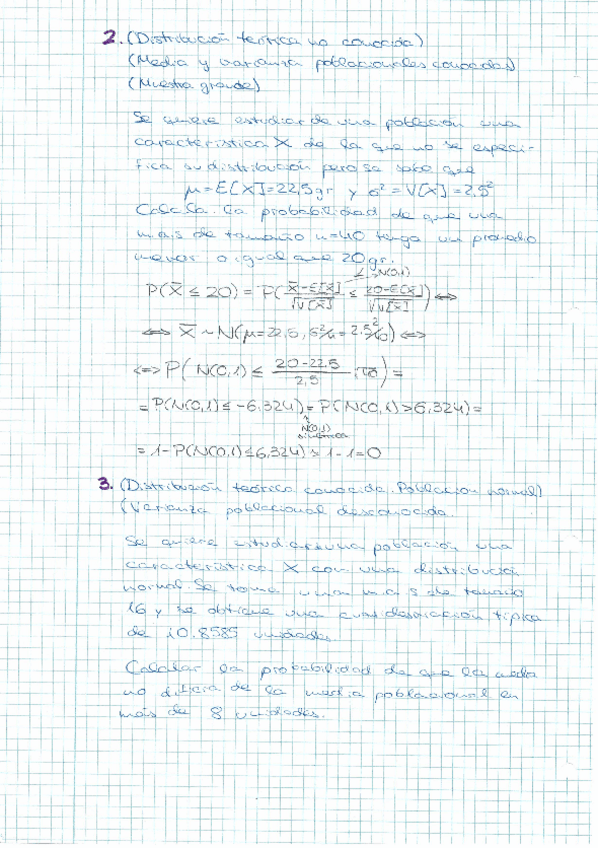 2. (Distribución teórica no conocida)
(Media y varianza poblacionales conocidas)
(Muestra grande)
Se quiere estudiar de una población una
característica X de la que no se especi-
fica su distribución pero se sabe que
μ = E[X] = 22,5 gr y σ² = V[X] = 2,5²
Calcula la probabilidad de que una
m.a.s de tamaño n=40 tenga un promedio
menor o igual que 20 gr.
→N(0,1)
P(X̄ ≤ 20) = P(X̄-E[X̄]/√V[X̄] ≤ 20-E[X̄]/√V[X̄]) ⇔
⇔ X̄ ~ N(μ=22,5, σ²/n = 2,5²/40) ⇔
⇔ P(N(0,1) ≤ 20-22,5/2,5 · √40) =
= P(N(0,1) ≤ -6,324) = P(N(0,1) > 6,324) =
N(0,1)
simétrica
= 1-P(N(0,1) ≤ 6,324) ≈ 1-1=0
3. (Distribución teórica conocida. Población normal)
(Varianza poblacional desconocida.
Se quiere estudiar una población una
característica X con una distribución
normal. Se toma una m.a.s de tamaño
16 y se obtiene una cuasidesviación típica
de 10,8585 unidades.
Calcular la probabilidad de que la media
no difiera de la media poblacional en
más de 8 unidades.